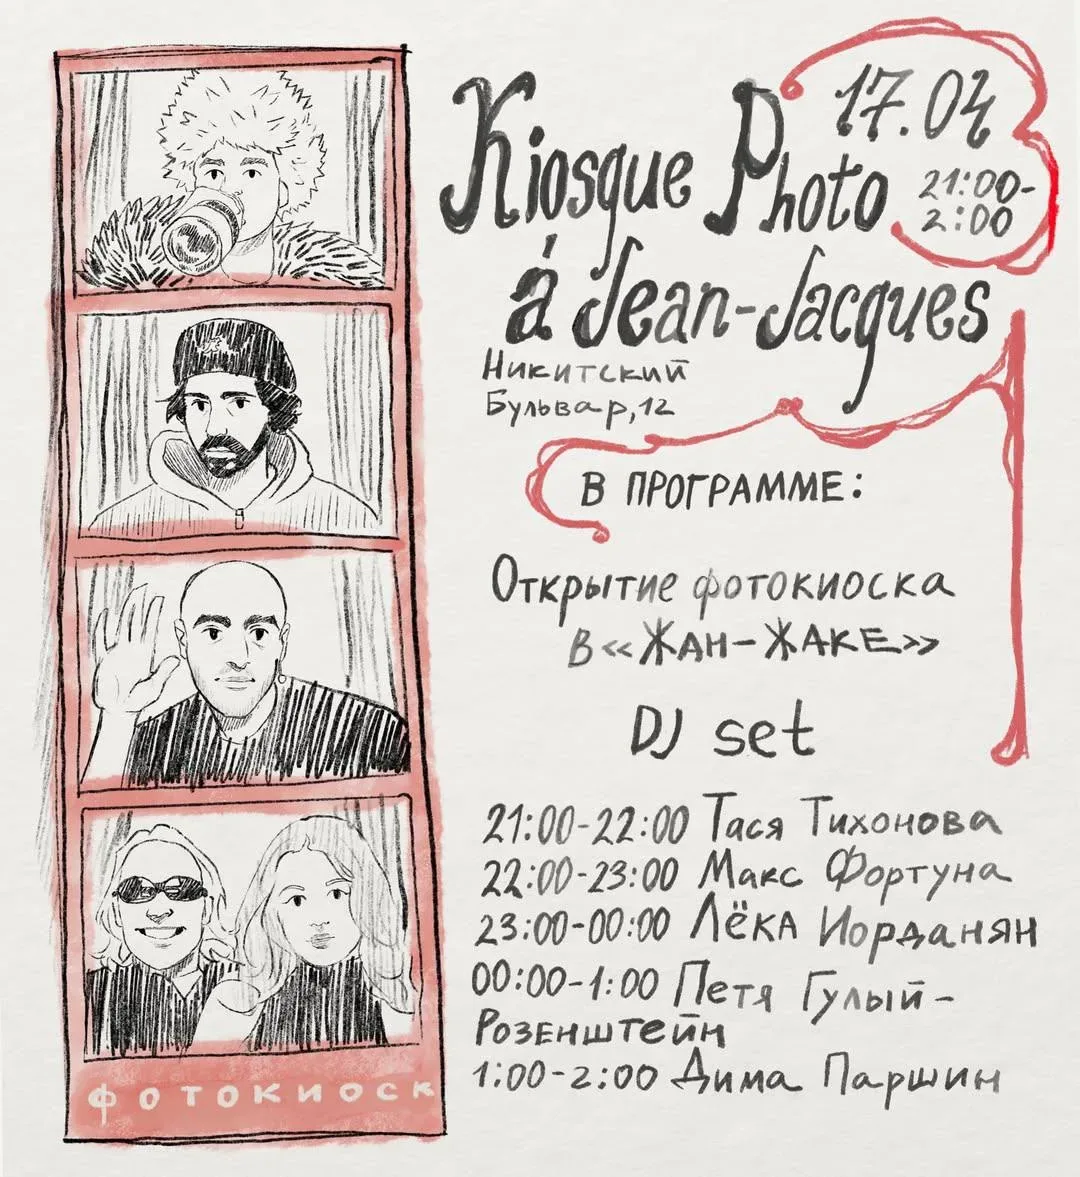 Kiosque Photo
á Jean-Jacques
17.04
21:00-
2:00
Никитский
Бульвар, 12
В ПРОГРАММЕ:
Открытие фотокиоска
в «ЖАН-ЖАКЕ»
DJ set
21:00-22:00 Тася Тихонова
22:00-23:00 Макс Фортуна
23:00-00:00 Лёка Иорданян
00:00-1:00 Петя Гулый-
Розенштейн
1:00-2:00 Дима Паршин
ФОТОКИОСК